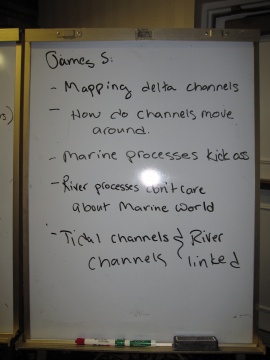 James S:
- Mapping delta channels
- How do channels move
around.
- Marine processes kick ass
- River processes don't care
about Marine World
- Tidal channels & River
channels linked